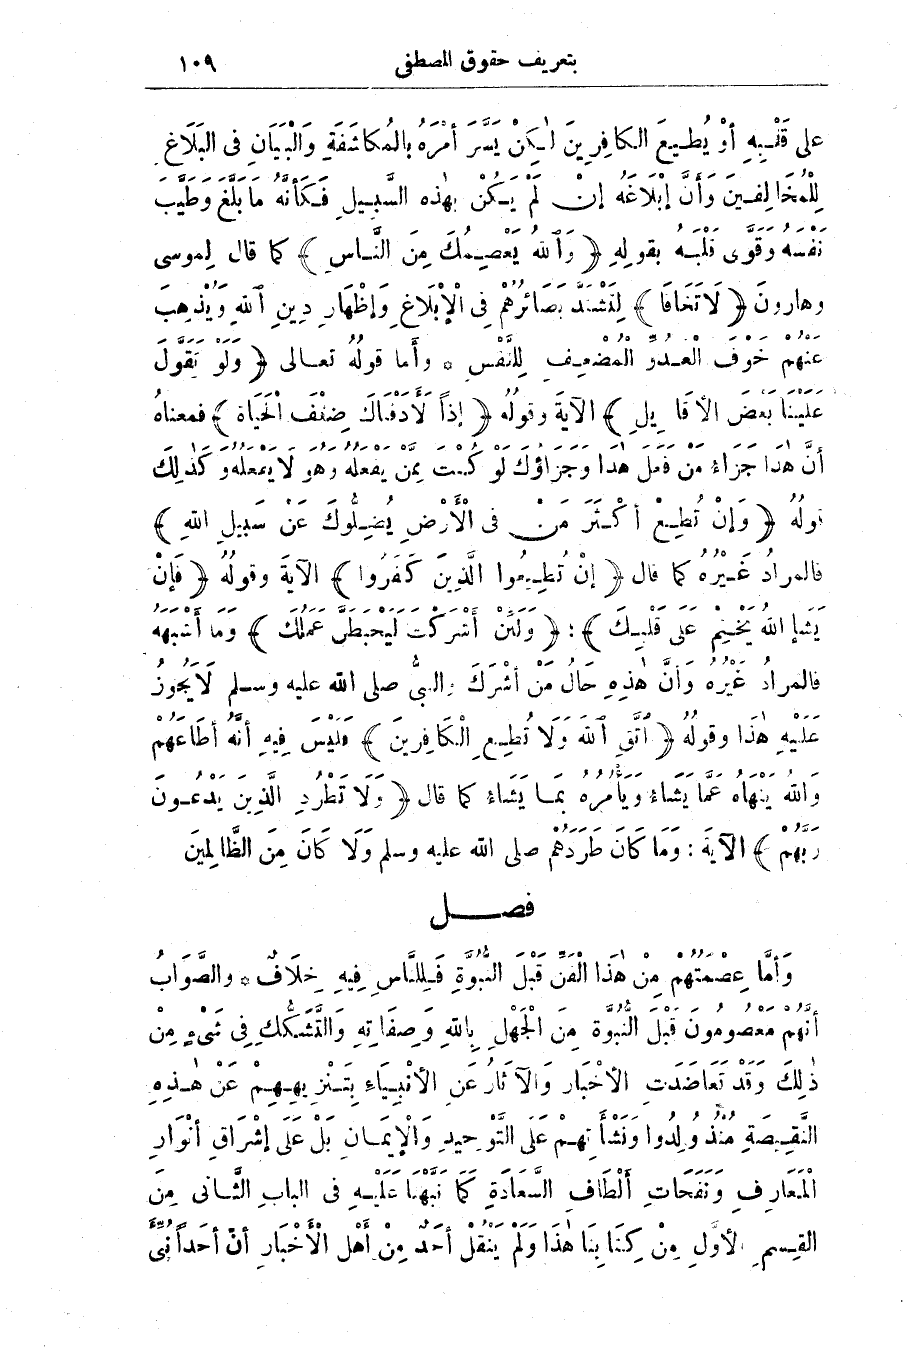 بتعريف حقوق المصطفى ١٠٩
على قَلْبِهِ أوْ يُطِيعَ الكافِرِينَ لٰكِنْ يَسَّرَ أمْرَهُ بالْمُكاشَفَةِ وَالْبَيَانِ فى البَلَاغِ
لِلْمُخَالِفِينَ وَأَنَّ إبْلَاغَهُ إنْ لَمْ يَكُنْ بهٰذه السَّبِيلِ فَكَأنَّهُ مَا بَلَّغَ وَطَيَّبَ
نَفْسَهُ وَقَوَّى قَلْبَهُ بقولِهِ ﴿ وَٱللهُ يَعْصِمُكَ مِنَ النَّاسِ ﴾ كما قال لِموسى
وهارونَ ﴿ لَاتَخَافَا ﴾ لِتَشْتَدَّ بَصَائِرُهُمْ فى الْإبْلَاغِ وَإظْهَارِ دِينِ ٱللهِ وَيُذْهِبَ
عَنْهُمْ خَوْفَ الْعَدُوِّ الْمُضْعِفِ لِلنَّفْسِ * وأما قولُهُ تعالى ﴿ وَلَوْ تَقَوَّلَ
عَلَيْنَا بَعْضَ الأقَاوِيلِ ﴾ الآيَةَ وقولُه ﴿ إذاً لَأَذَقْنَاكَ ضِعْفَ الْحَيَاة ﴾ فمعناهُ
أنَّ هٰذا جَزَاءُ مَنْ فَعَلَ هٰذا وَجَزَاؤكَ لَوْ كُنْتَ مِمَّنْ يَفْعَلُهُ وهُوَ لَا يَفْعَلُهُ وَكَذٰلِكَ
قولُهُ ﴿ وَإنْ تُطِعْ أكْثَرَ مَنْ فى الْأَرْضِ يُضِلُّوكَ عَنْ سَبِيلِ اللهِ ﴾
فالمرادُ غَيْرُهُ كما قال ﴿ إنْ تُطِيعُوا الَّذِينَ كَفَرُوا ﴾ الآيَةَ وقولُهُ ﴿ فَإنْ
يَشَإ اللهُ يَخْتِمْ عَلَى قَلْبِكَ ﴾ : ﴿ وَلَئِنْ أشْرَكْتَ لَيَحْبَطَنَّ عَمَلُكَ ﴾ وَمَا أشْبَهَه
فالمرادُ غَيْرُهُ وَأنَّ هٰذِهِ حَالُ مَنْ أشْرَكَ والنبىُّ صلى الله عليه وسلم لَايَجُوزُ
عَلَيْهِ هٰذَا وقولُهُ ﴿ ٱتَّقِ ٱللهَ وَلَا تُطِعِ الْكَافِرِينَ ﴾ فَلَيْسَ فِيهِ أنَّهُ أطَاعَهُمْ
وَاللهُ يَنْهَاهُ عَمَّا يَشَاءُ وَيَأْمُرُهُ بمَا يَشَاءُ كما قال ﴿ وَلَا تَطْرُدِ الَّذِينَ يَدْعُونَ
رَبَّهُمْ ﴾ الآيَةَ : وَمَا كَانَ طَرَدَهُمْ صلى الله عليه وسلم وَلَا كَانَ مِنَ الظَّالِمِينَ
فصـــل
وَأمَّا عِصْمَتُهُمْ مِنْ هٰذَا الْفَنِّ قَبْلَ النُّبُوَّةِ فَلِلنَّاسِ فِيهِ خِلَافٌ * والصَّوَابُ
أنَّهُمْ مَعْصُومُونَ قَبْلَ النُّبُوَّةِ مِنَ الْجَهْلِ بِاللهِ وَصِفَاتِهِ وَالتَّشَكُّكِ فِى شَىْءٍ مِنْ
ذٰلِكَ وَقَدْ تَعَاضَدَتِ الأخْبَارُ وَالآثَارُ عَنِ الأنْبِيَاءِ بِتَنْزِيهِهِمْ عَنْ هٰذِهِ
النَّقِيصَةِ مُنْذُ وُلِدُوا وَنَشْأَتِهِمْ عَلَى التَّوْحِيدِ وَالْإيمَانِ بَلْ عَلَى إشْرَاقِ أنْوَارِ
الْمَعَارِفِ وَنَفَحَاتِ ألْطَافِ السَّعَادَةِ كما نَبَّهْنَا عَلَيْهِ فى الباب الثَّانى مِنَ
القِسمِ الأوَّلِ مِنْ كِتَابِنَا هٰذَا وَلَمْ يَنْقُلْ أحَدٌ مِنْ أهْلِ الْأخْبَارِ أنَّ أحَداً نُبِّئَ